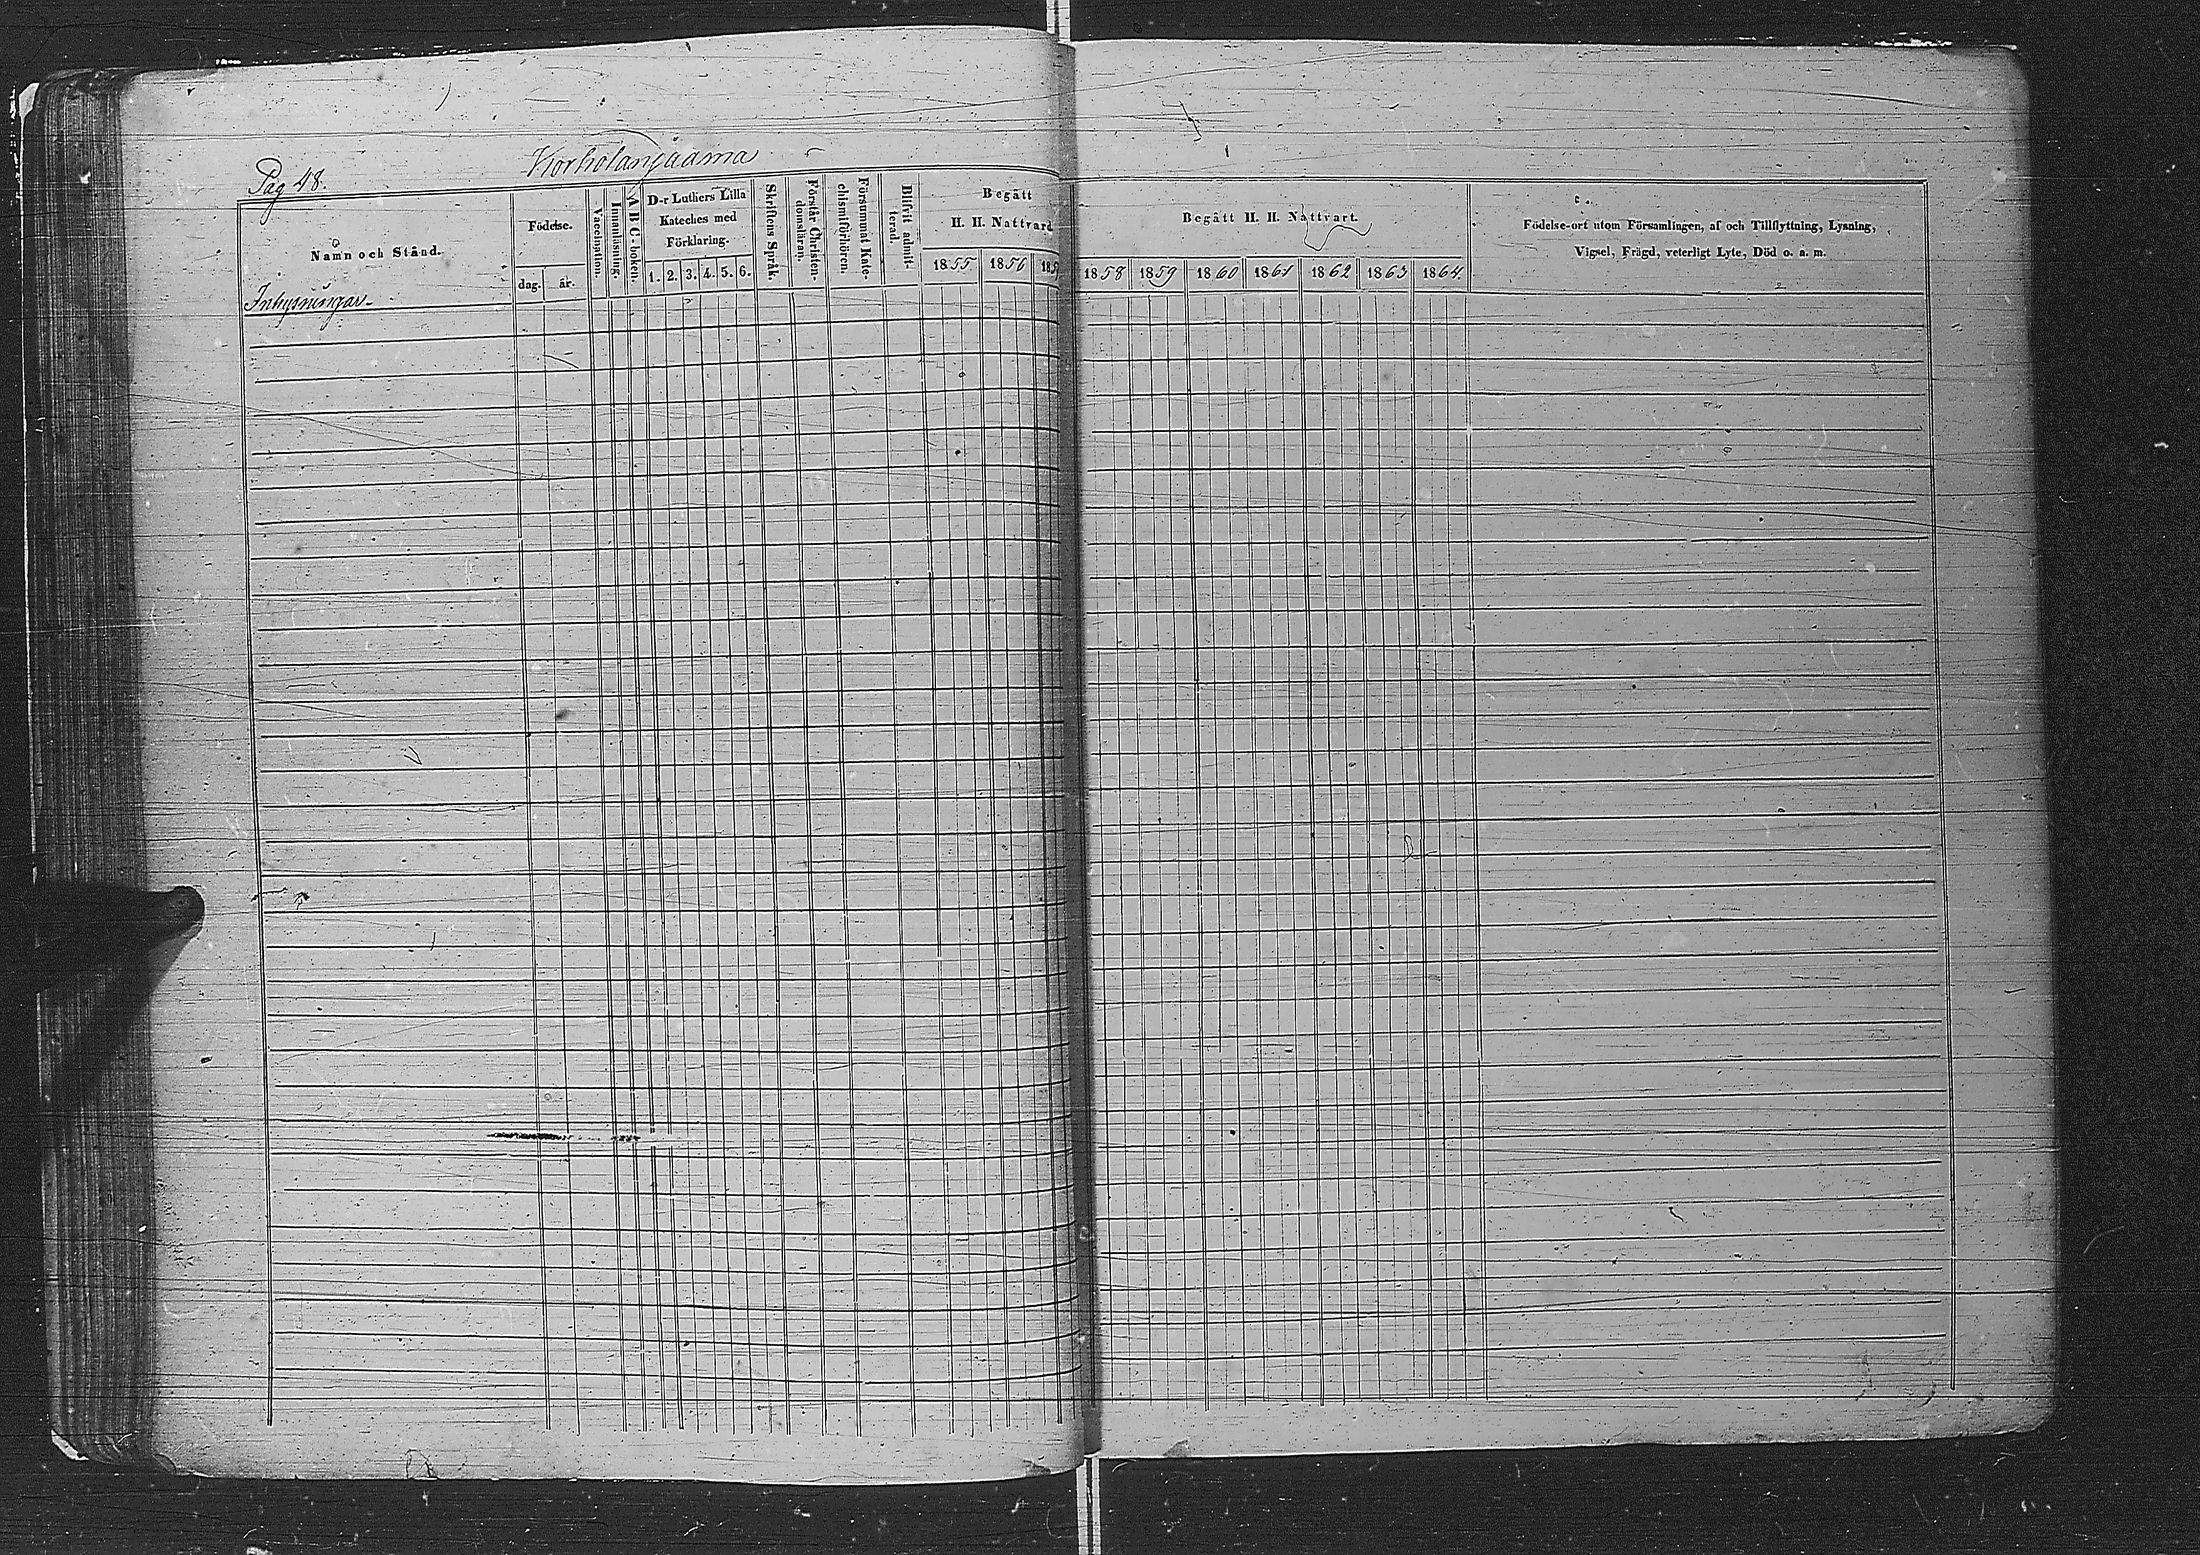 Pag 48.
Korholanjaama
Namn och Stånd.
Födelse.
dag.
år.
Vaccination.
Innanläsning.
A B C-boken.
D-r Luthers Lilla
Kateches med
Förklaring.
1. 2. 3. 4. 5. 6.
Skriftens Språk.
Förstår Christen-
domsläran.
Försummat Kate-
chismiförhören.
Blifvit admit-
terad.
Begått
H. H. Nattvard
1855
1856
185
Begått H. H. Nattvart.
1858
1859
1860
1861
1862
1863
1864
Födelse-ort utom Församlingen, af och Tillflyttning, Lysning,
Vigsel, Frägd, veterligt Lyte, Död o. a. m.
Inhysningar